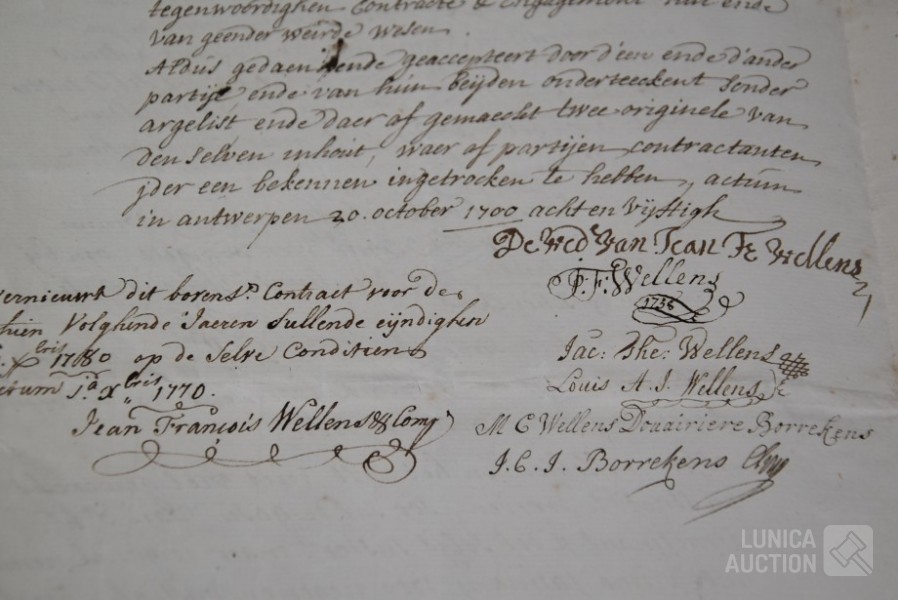 tegenwoordighen contracte & engagement
van geender weirde wesen.
Aldus gedaen ende geaccepteert door d'een ende d'ander
partije ende van hun beijden onderteeckent sonder
argelist ende daer af gemaeckt twee originele van
den selven inhout, waer af partijen contractanten
jder een bekennen ingetrocken te hebben, actum
in antwerpen 20. october 1700 acht en vijftigh
De Wed.e van Jean Fr Wellens
P. F: Wellens
1758
Jac: The: Wellens
Louis A. J. Wellens
M C Wellens Douairiere Borrekens
J. C. J. Borrekens
vernieuwt dit borens.n Contract voor de
thien Volghende Jaeren sullende eijndighen
xbris 1780 op de selve Conditien
1.a xbris 1770.
Jean François Wellens & Comp
LUNICA
AUCTION